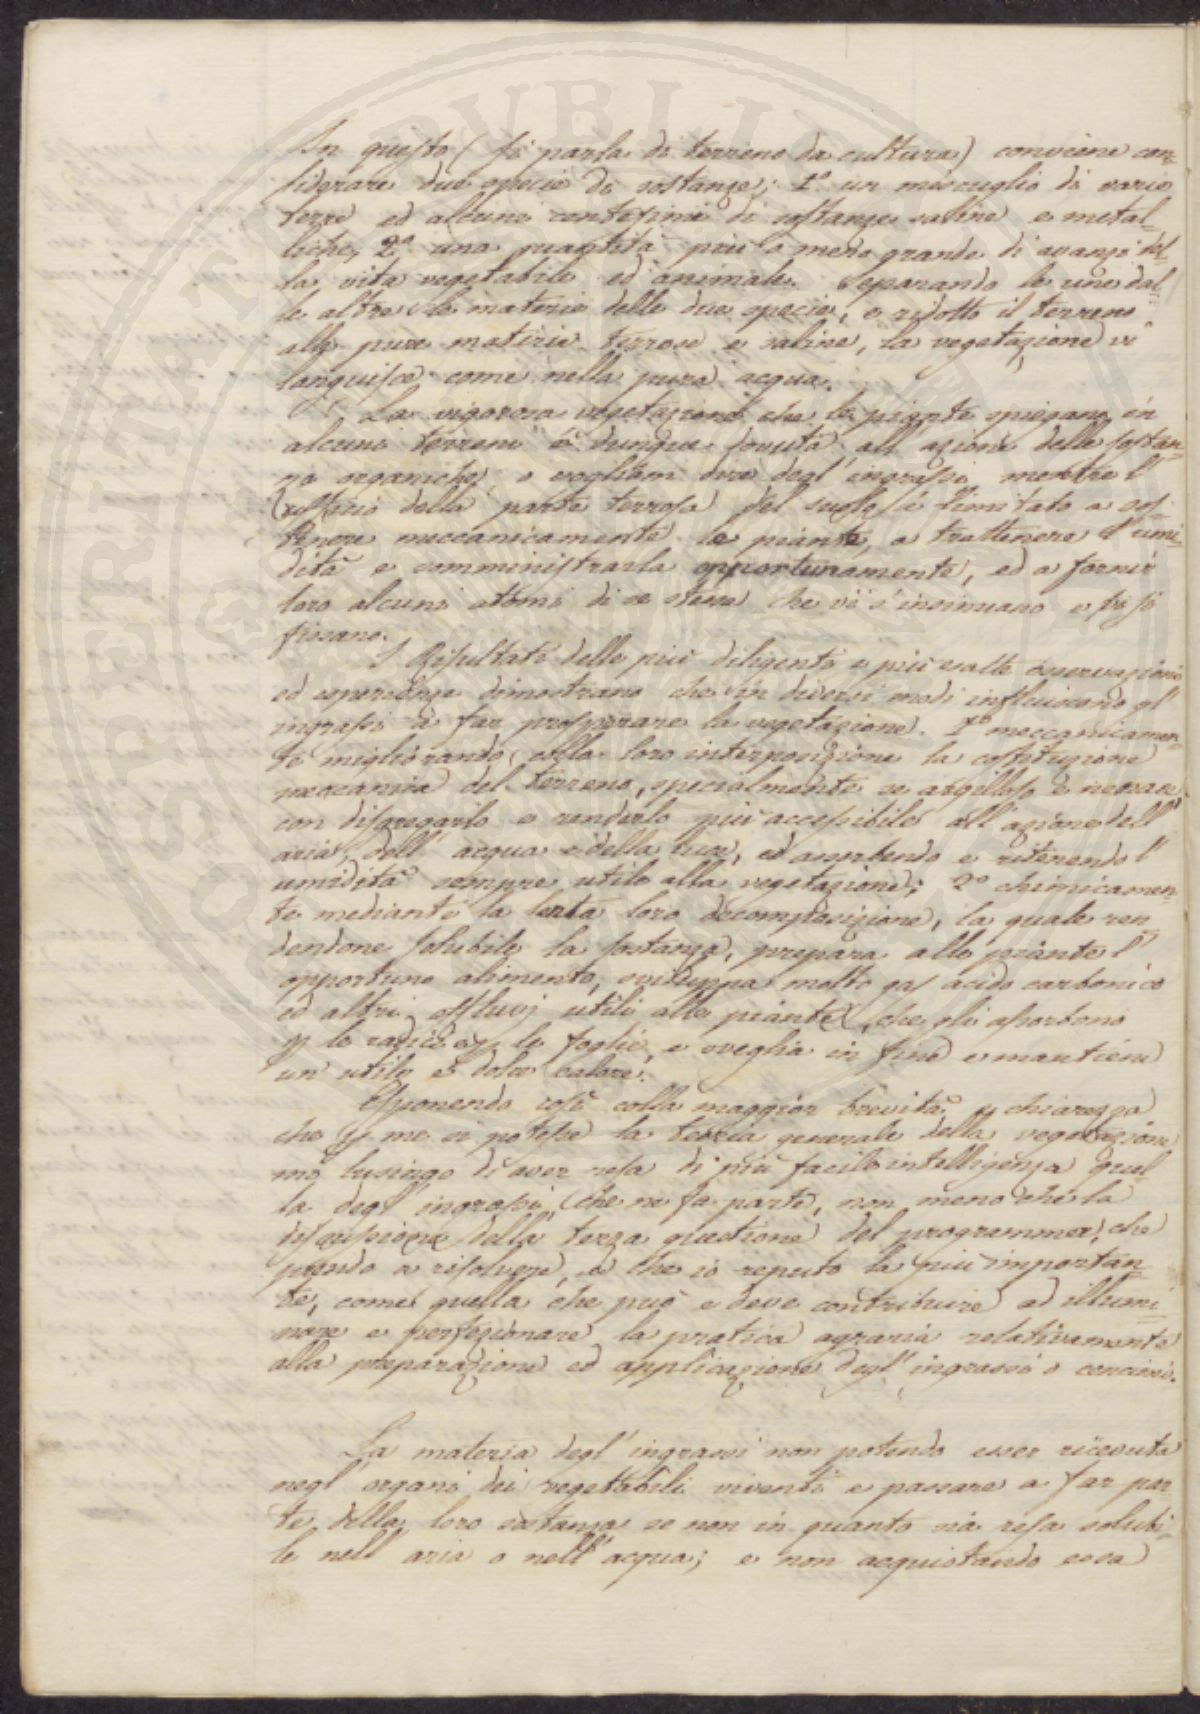 In questo (si parla di terreno da cultura) conviene con-
siderare due specie di sostanze; 1.º un miscuglio di varie
terre ed alcuni centesimi di sostanze saline e metal-
liche, 2º una quantità più o meno grande di avanzi del-
la vita vegetabile ed animale. Separando le une dal-
le altre le materie delle due specie, e ridotto il terreno
alle pure materie terrose e saline, la vegetazione vi
languisce come nella pura acqua.
La vigorosa vegetazione che le piante spiegano in
alcuni terreni è dunque dovuta all'azione delle sostan-
ze organiche, o vogliam dire degl'ingrassi, mentre l'
uffizio della parte terrosa del suolo è limitato a sos
tenere meccanicamente le piante, a trattenere l'umi-
dità e somministrarla opportunamente, ed a fornir
loro alcuni atomi di se stesse che vi s'insinuano e vi si
fissano.
I Resultati delle più diligenti e più esatte osservazioni
ed esperienze dimostrano che in diversi modi influiscano gl'
ingrassi a far prosperare la vegetazione. 1º meccanicamen-
te migliorando colla loro interposizione la costituzione
meccanica del terreno, specialmente se argilloso e
con disgregarlo e renderlo più accessibile all'azione dell'
aria, dell'acqua e della luce, ed assorbendo e ritenendo l'
umidità sempre utile alla vegetazione; 2º chimicamen-
te mediante la lenta loro decomposizione, la quale ren
dendone solubile la sostanza, prepara alle piante l'
opportuno alimento, sviluppa molto gas acido carbonico
ed altri effluvj utili alle piante, che gli assorbono
p le radici e p le foglie, e sveglia in fine e mantiene
un utile e dolce calore.
Esponendo così colla maggior brevità, e chiarezza
che p me si potesse la teoria generale della vegetazione
mi lusingo di aver resa di più facile intelligenza quel
la degl'ingrassi, che ne fa parte, non meno che la
discussione della terza questione del programma, che
prendo a risolvere, e che io reputo la più importan-
te, come quella che può e deve contribuire ad illumi-
nare e perfezionare la pratica agraria relativamente
alla preparazione ed applicazione degl'ingrassi o concimi.
La materia degl'ingrassi non potendo esser ricevuta
negl'organi dei vegettabili viventi e passare a far par
te della loro sostanza se non in quanto sia resa solubi-
le nell'aria o nell'acqua; e non acquistando essa